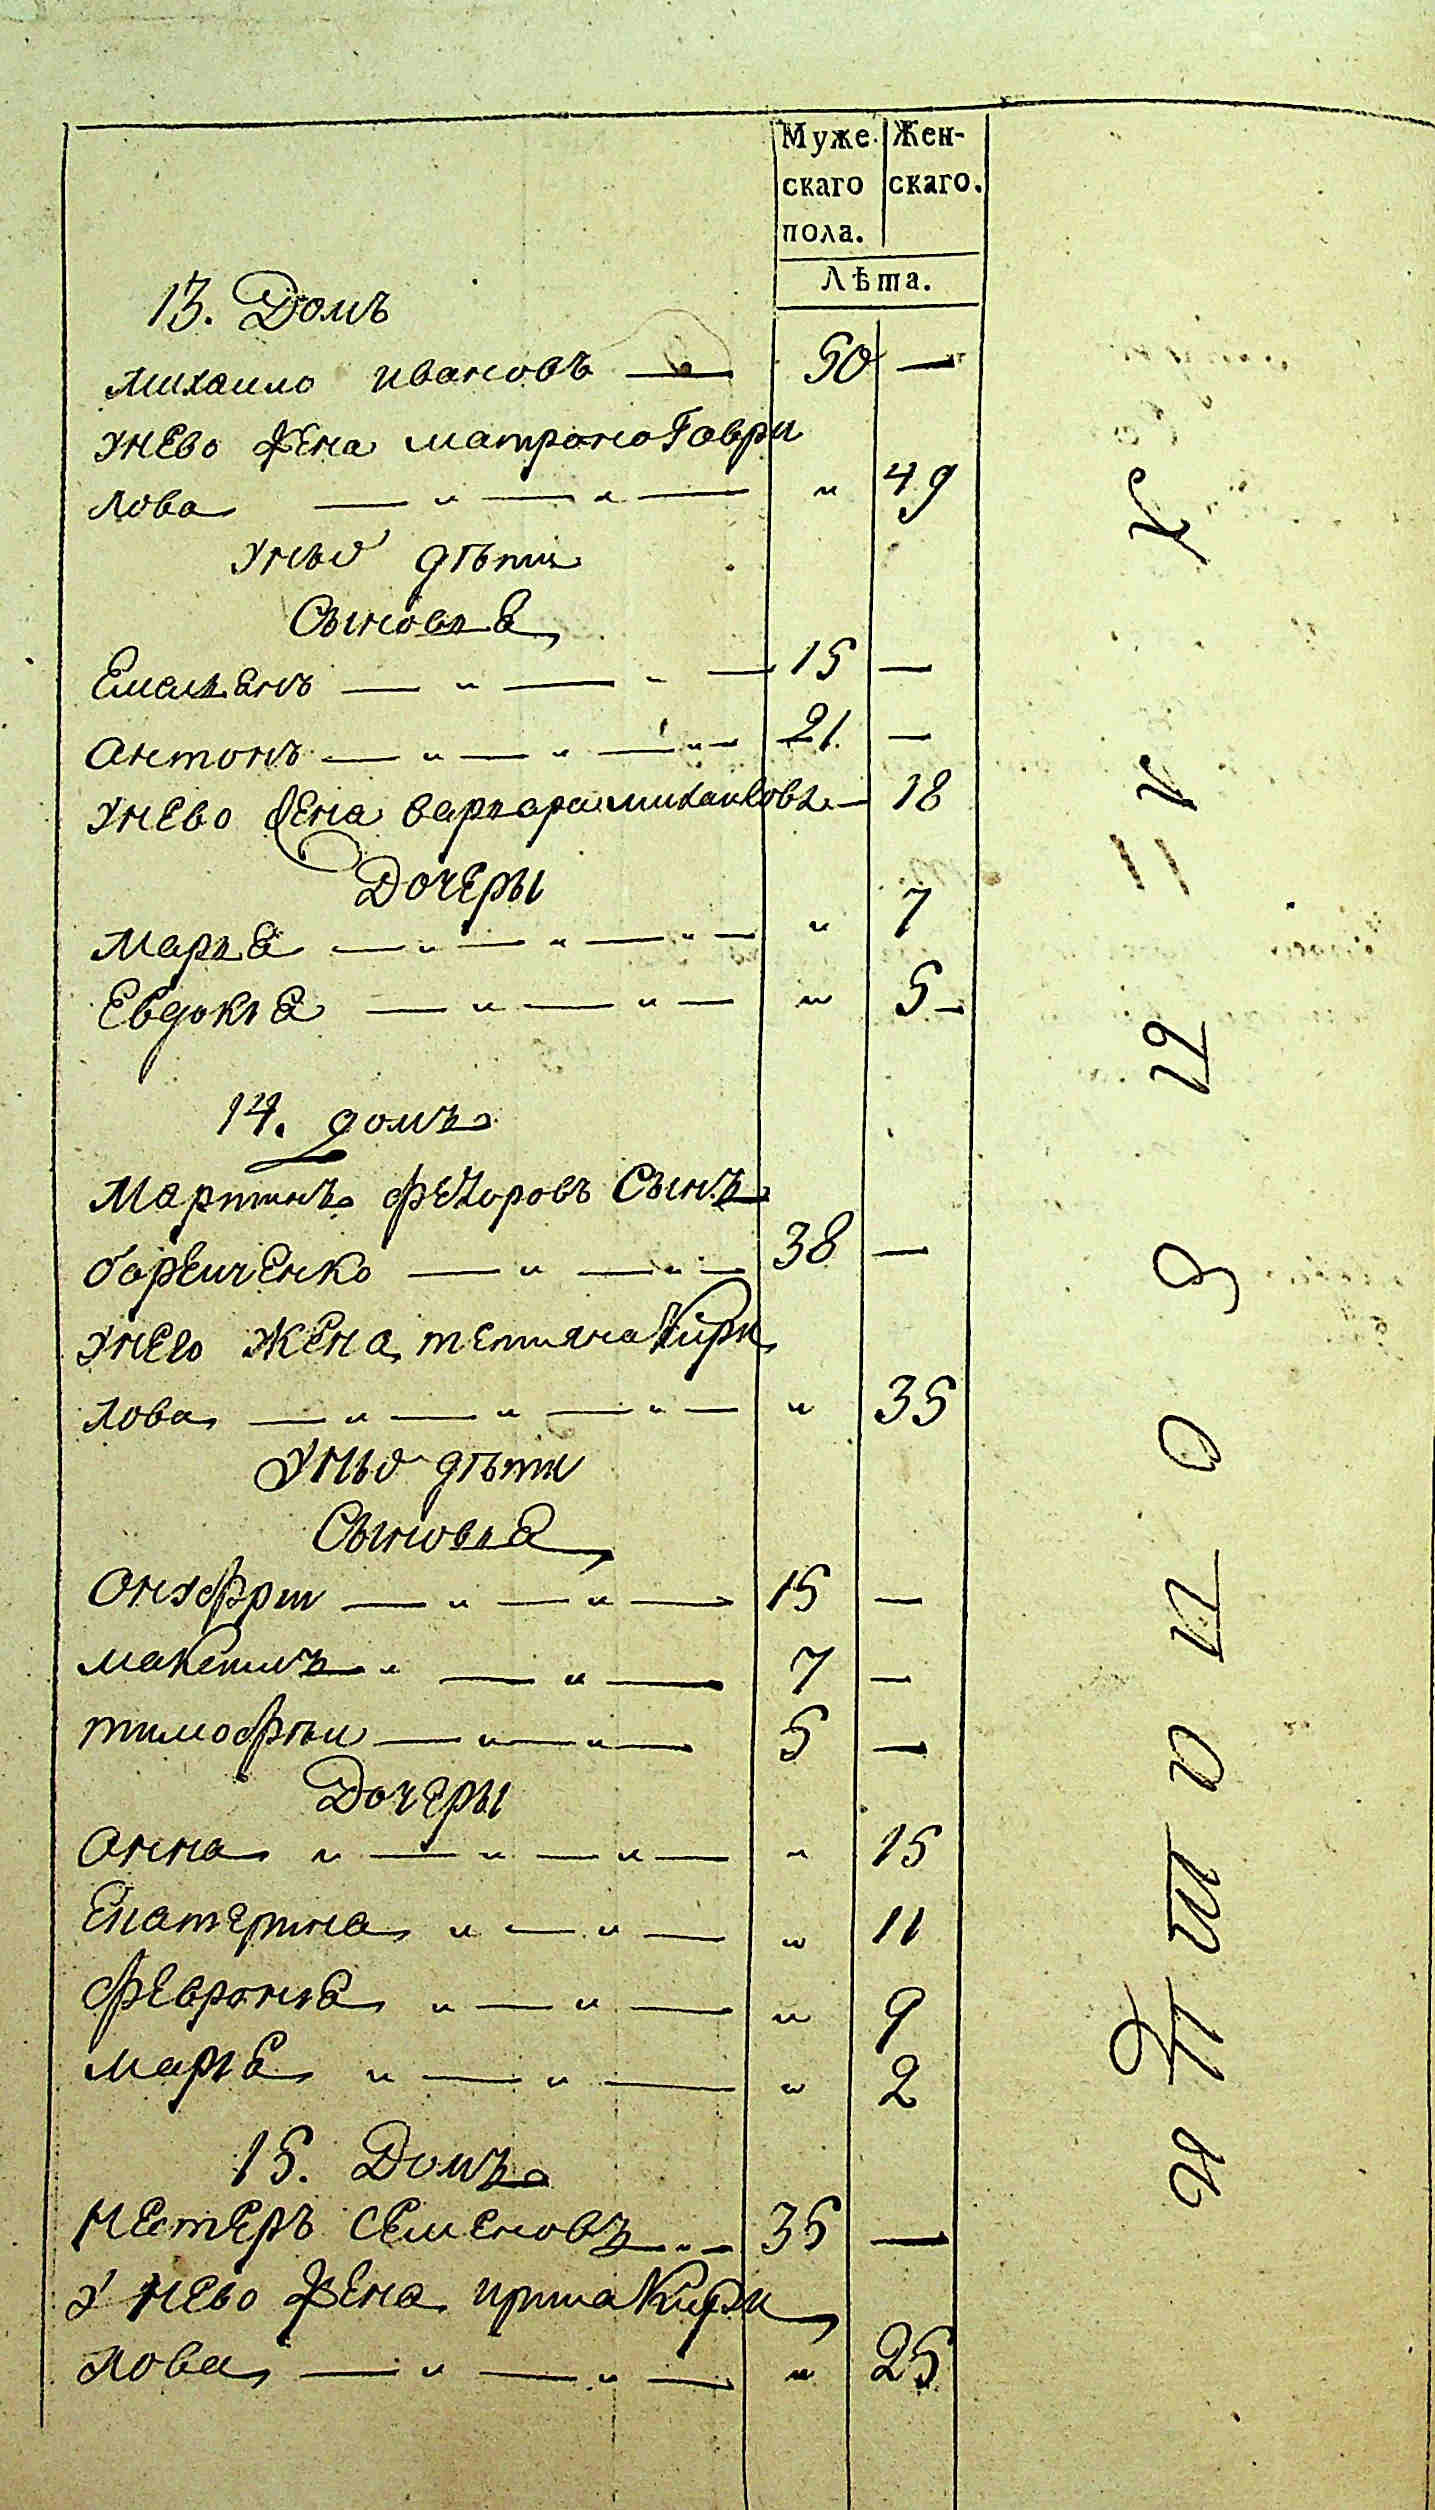 Муже-
скаго
пола.
Жен-
скаго.
Лѣта.
13. Домъ
михаило ивановъ — 50 —
унево жена матрона Гаври
лова — " — " — " 49
унью дѣти
Сыновья
Емельянъ — " — " — 15 —
антонъ — " — " — " — 21 —
унево жена варвара михаилова — 18
Дочеры
марья — " — " — " — " 7
Евдокія — " — " — " 5 —
14. домъ
Мартинъ федоровъ Сынъ
— " — " — 38 —
унево жена, тетияна Кири
лова — " — " — " — " 35
Унью дѣти
Сыновья
Онуфри — " — " — 15 —
максимъ " — " — 7 —
тимофѣи — " — " — 5 —
Дочеры
анна " — " — " — " 15
Екатерина " — " — " 11
февронія " — " — " 9
марія " — " — " 2
15. Домъ
нестеръ семеновъ — " — 35 —
У нево жена ирина Кири
лова — " — " — " 25